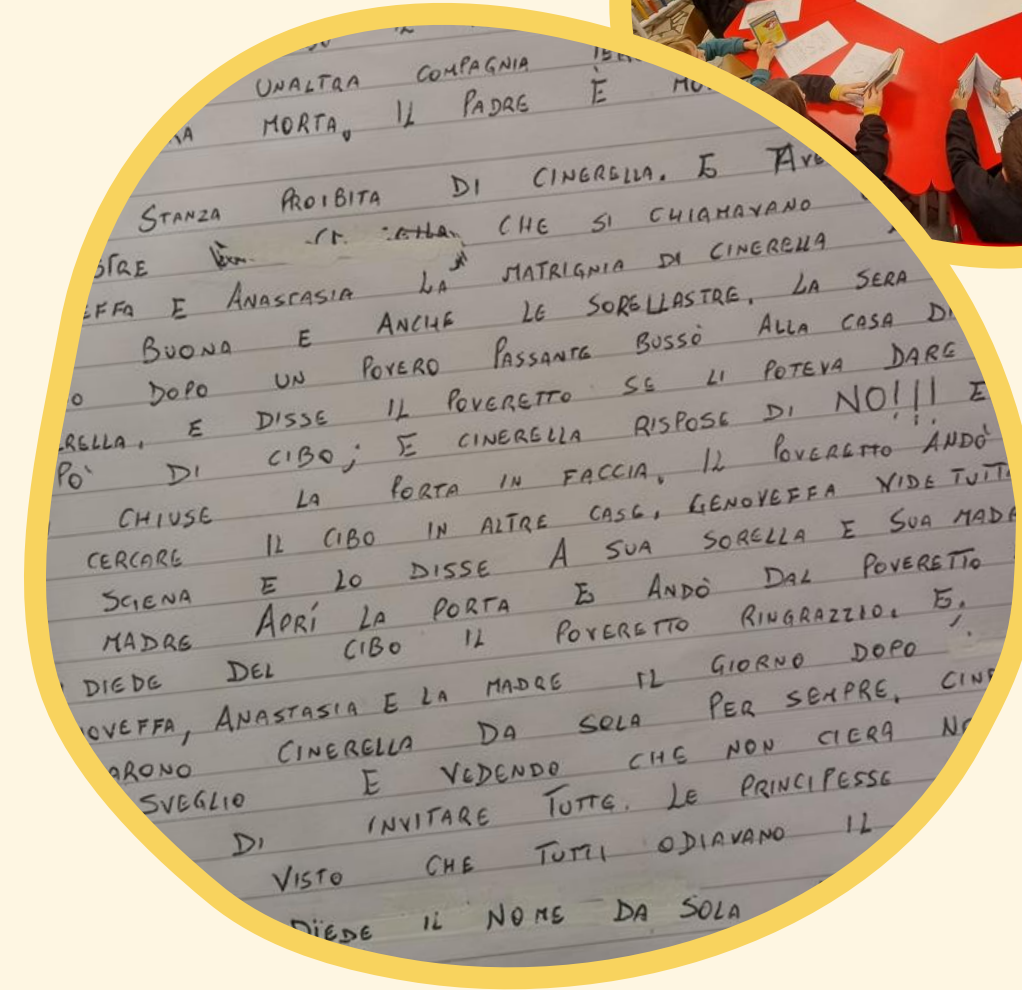 UNALTRA COMPAGNIA
MORTA, IL PADRE È
STANZA PROIBITA DI CINERELLA. E AVE
STRE CHE SI CHIAMAVANO
EFFA E ANASTASIA LA MATRIGNIA DI CINERELLA
BUONA E ANCHE LE SORELLASTRE. LA SERA
O DOPO UN POVERO PASSANTE BUSSÒ ALLA CASA DI
RELLA. E DISSE IL POVERETTO SE LI POTEVA DARE
PO' DI CIBO; E CINERELLA RISPOSE DI NO!!! E
CHIUSE LA PORTA IN FACCIA, IL POVERETTO ANDÒ
CERCARE IL CIBO IN ALTRE CASE, GENOVEFFA VIDE TUTTA
SCIENA E LO DISSE A SUA SORELLA E SUA MADR
MADRE APRÍ LA PORTA E ANDÒ DAL POVERETTO
DIEDE DEL CIBO IL POVERETTO RINGRAZZIO. E,
OVEFFA, ANASTASIA E LA MADRE IL GIORNO DOPO
ARONO CINERELLA DA SOLA PER SEMPRE, CINE
SVEGLIO E VEDENDO CHE NON CIERA NE
DI INVITARE TUTTE. LE PRINCIPESSE
VISTO CHE TUTTI ODIAVANO IL
DIEDE IL NOME DA SOLA